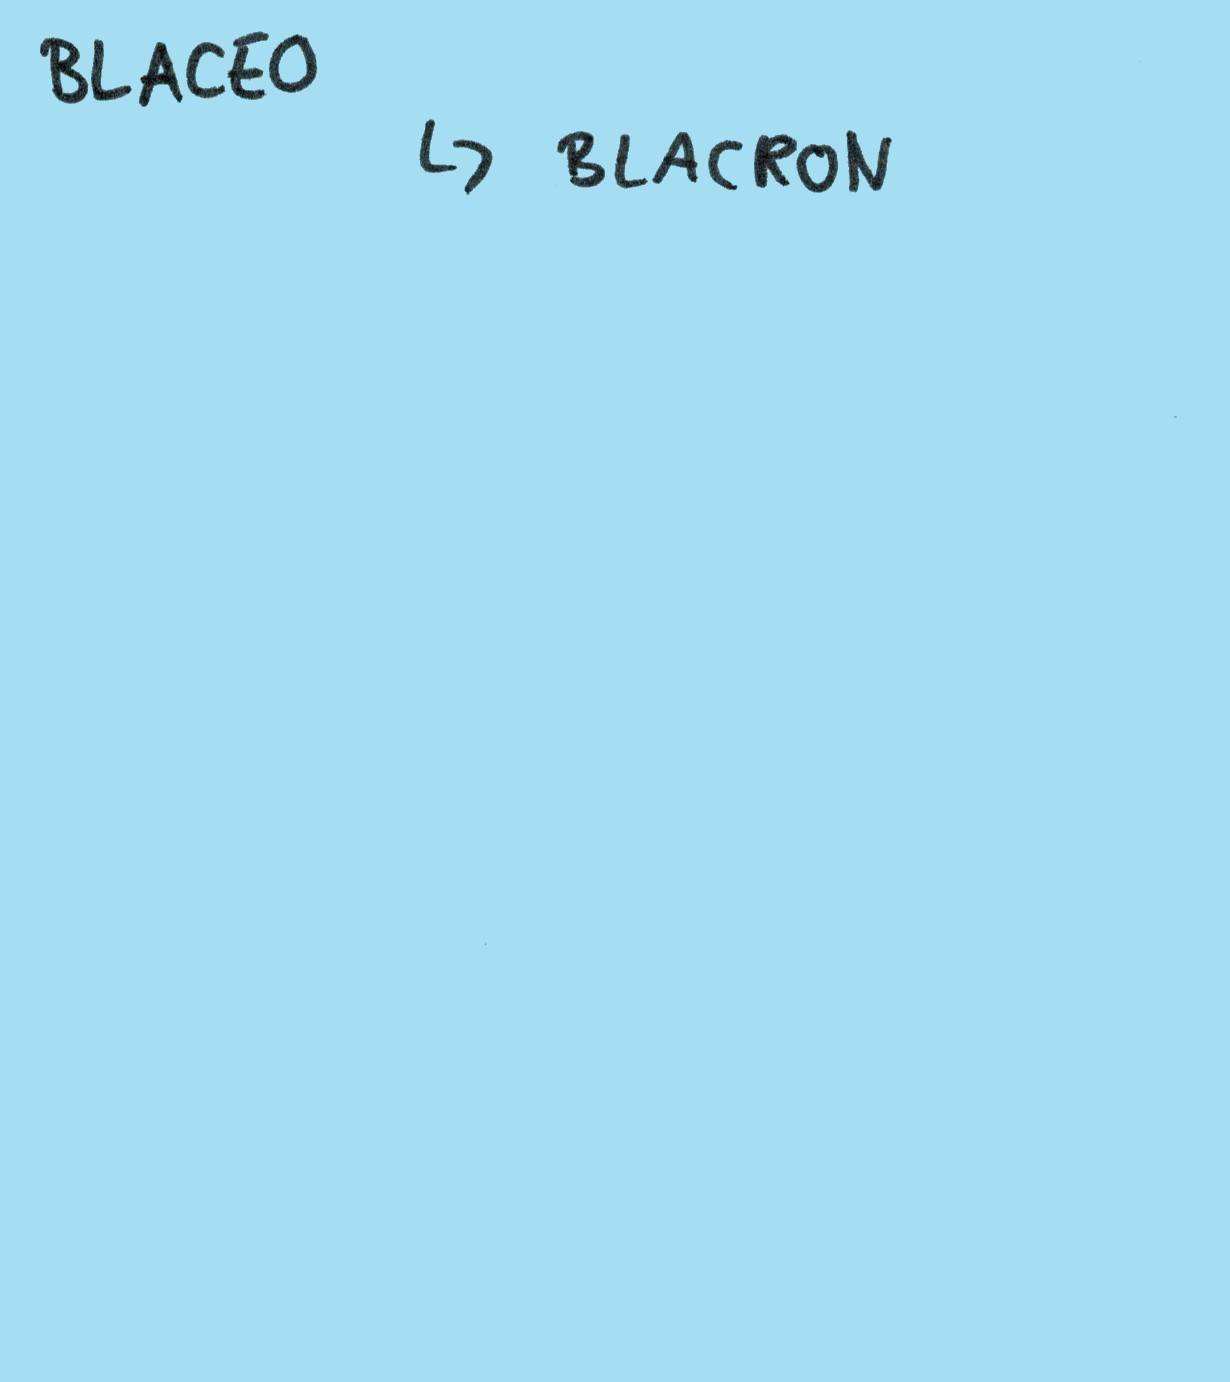 BLACEO
↳ BLACRON